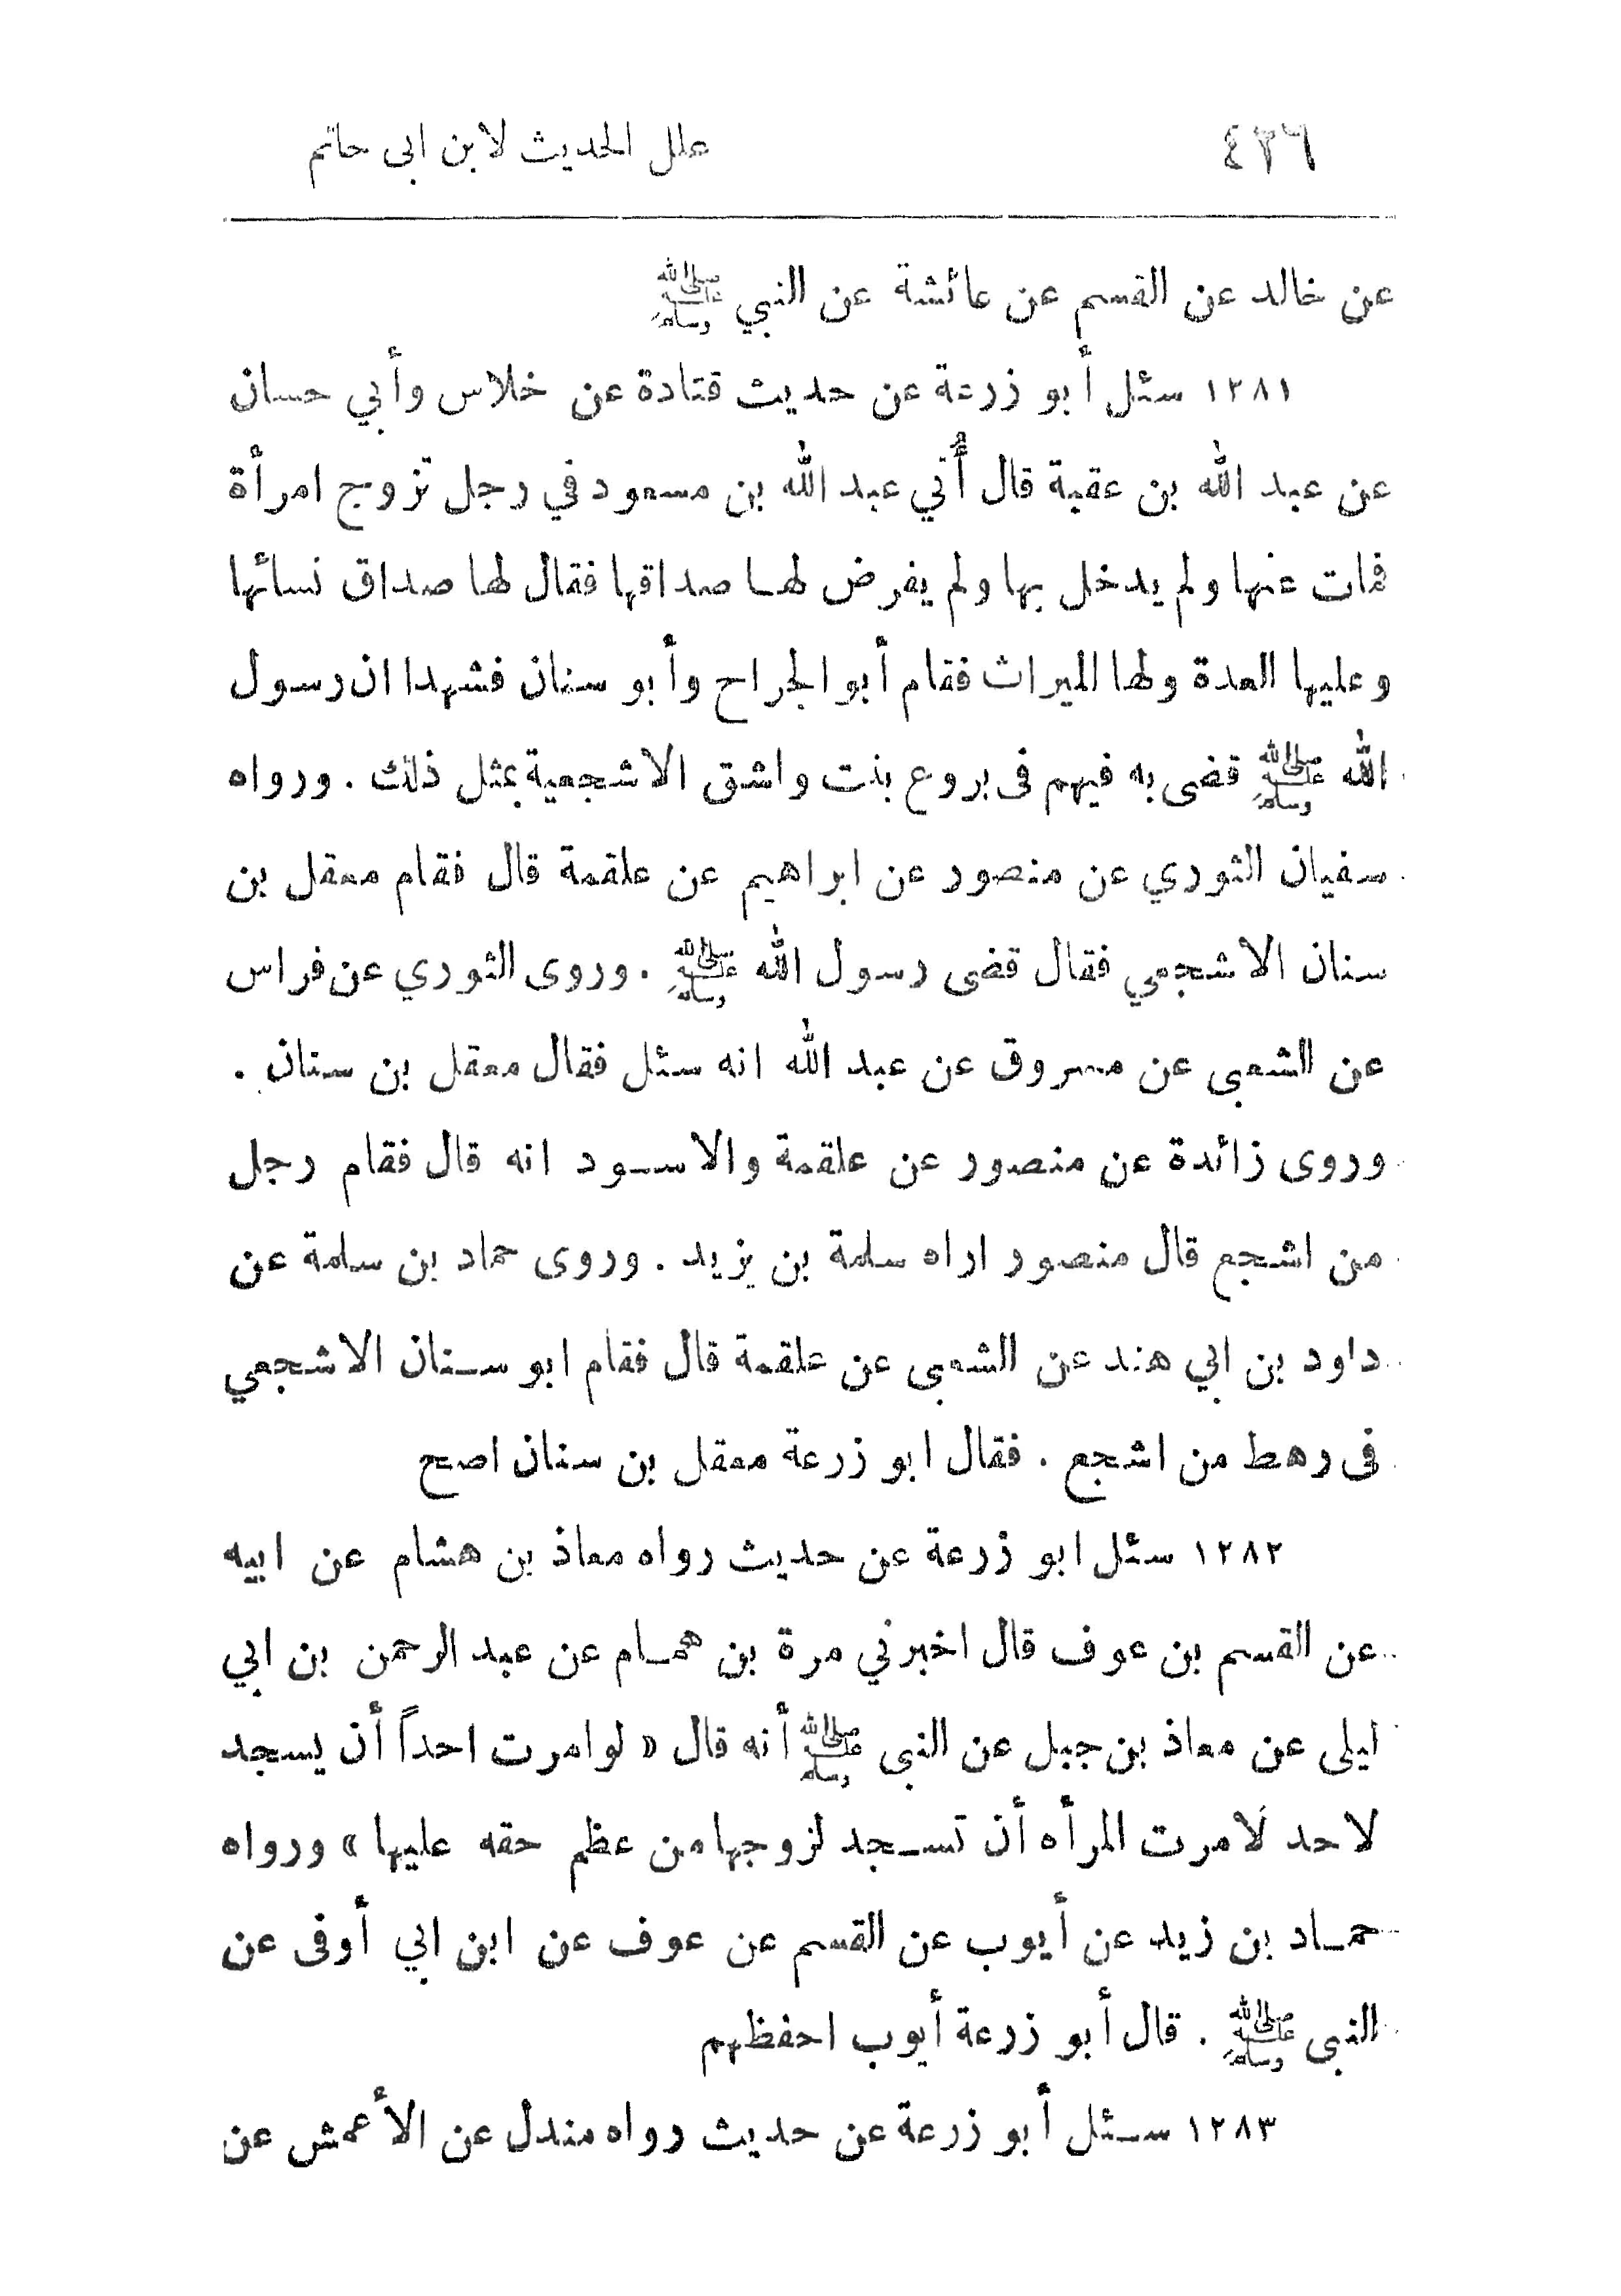 ٤٢٦ علل الحديث لابن ابى حاتم
عن خالد عن القسم عن عائشة عن النبي ﷺ
١٢٨١ سئل أبو زرعة عن حديث قتادة عن خلاس وأبي حسان
عن عبد الله بن عقبة قال أُتي عبد الله بن مسعود في رجل تزوج امرأة
فمات عنها ولم يدخل بها ولم يفرض لهـا صداقها فقال لها صداق نسائها
وعليها العدة ولها الميراث فقام أبو الجراح وأبو سنان فشهدا ان رسول
الله ﷺ قضى به فيهم فى بروع بنت واشق الاشجعية بمثل ذلك . ورواه
سفيان الثوري عن منصور عن ابراهيم عن علقمة قال فقام معقل بن
سنان الاشجعي فقال قضى رسول الله ﷺ . وروى الثوري عن فراس
عن الشعبى عن مسروق عن عبد الله انه سئل فقال معقل بن سنان .
وروى زائدة عن منصور عن علقمة والاسـود انه قال فقام رجل
من اشجع قال منصور اراه سلمة بن يزيد . وروى حماد بن سلمة عن
داود بن ابي هند عن الشعبى عن علقمة قال فقام ابو سـنان الاشجعي
فى رهط من اشجع . فقال ابو زرعة معقل بن سنان اصح
١٢٨٢ سئل ابو زرعة عن حديث رواه معاذ بن هشام عن ابيه
عن القسم بن عوف قال اخبرني مرة بن همـام عن عبد الرحمن بن ابي
ليلى عن معاذ بن جبل عن النبى ﷺ أنه قال « لو امرت احداً أن يسجد
لاحد لَامرت المرأه أن تسـجد لزوجها من عظم حقه عليها » ورواه
حمـاد بن زيد عن أيوب عن القسم عن عوف عن ابن ابي أوفى عن
النبى ﷺ . قال أبو زرعة أيوب احفظهم
١٢٨٣ سـئل أبو زرعة عن حديث رواه مندل عن الأعمش عن